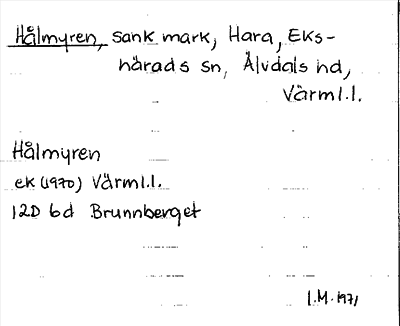 Hålmyren, sank mark, Hara, Eks-
härads sn, Älvdals hd,
Värml.l.
Hålmyren
ek (1970) Värml.l.
12D 6d Brunnberget
I.M. 1971